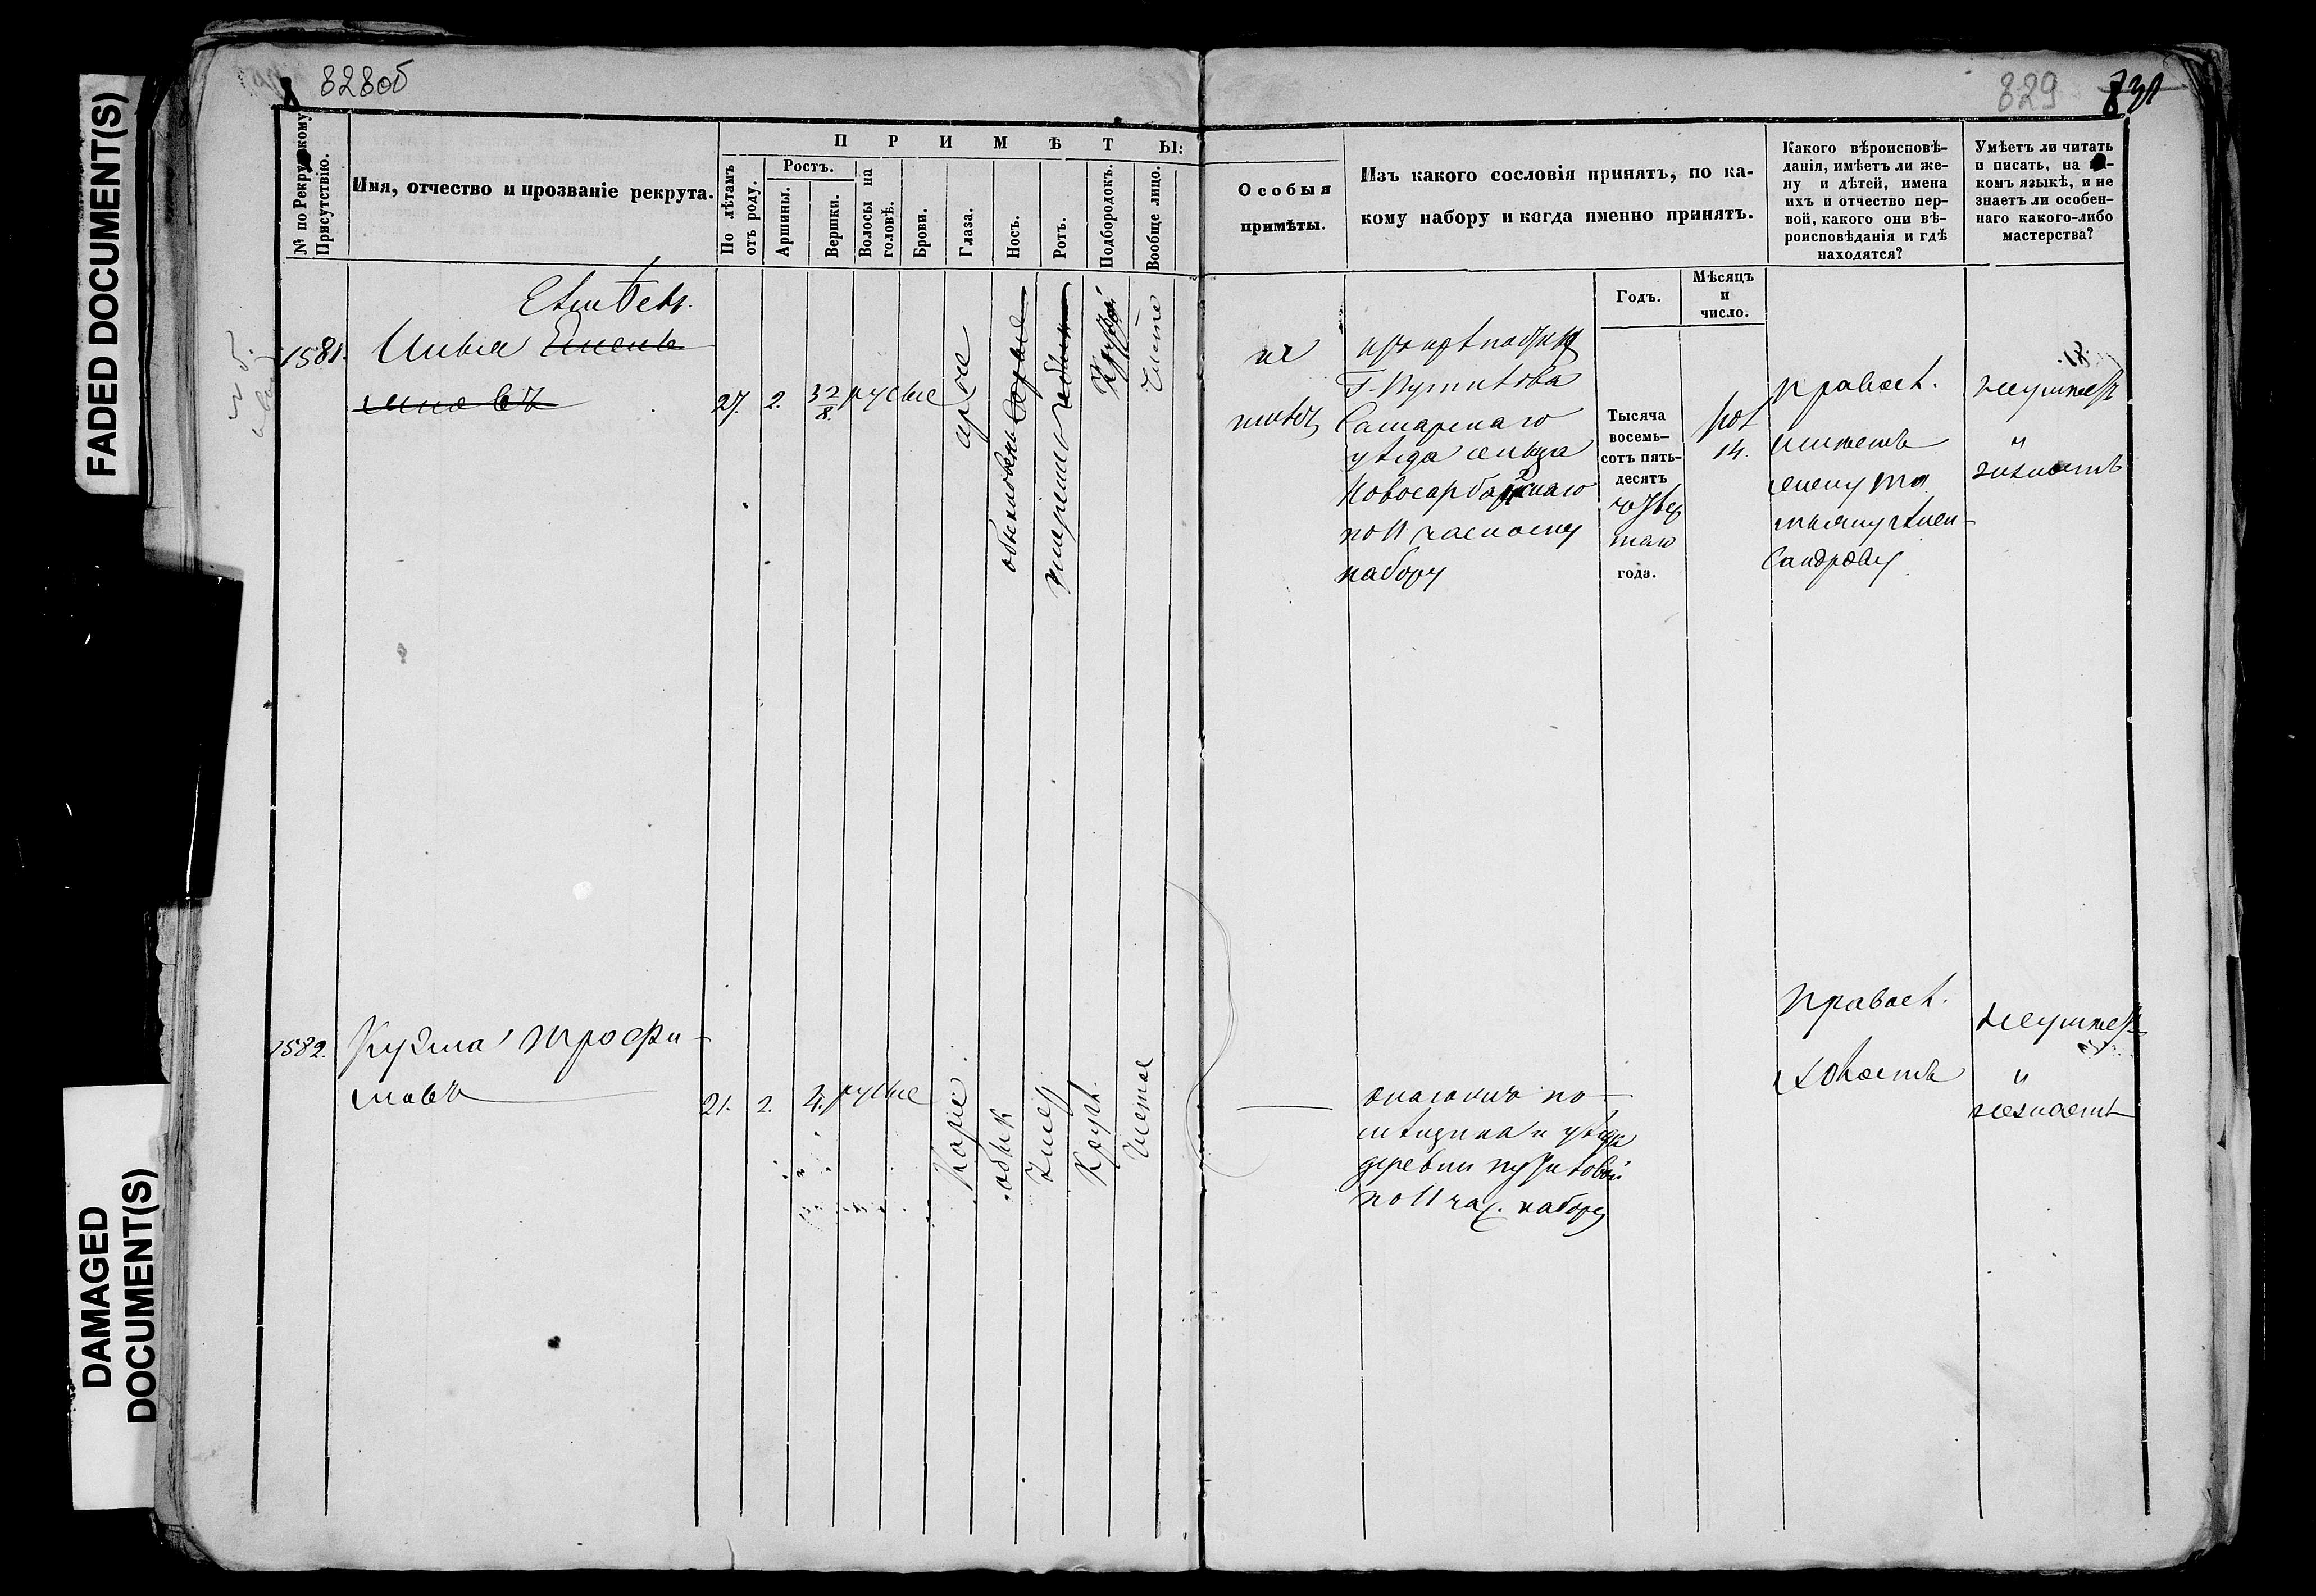 FADED DOCUMENT(S)
DAMAGED
DOCUMENT(S)
828об
829
831
№ по Рекрутскому Присутствію.
Имя, отчество и прозваніе рекрута.
ПРИМѢТЫ:
По лѣтамъ отъ роду.
Ростъ.
Аршины.
Вершки.
Волосы на головѣ.
Брови.
Глаза.
Носъ.
Ротъ.
Подбородокъ.
Вообще лицо.
Особыя
примѣты.
Изъ какого сословія принятъ, по ка-
кому набору и когда именно принятъ.
Годъ.
Мѣсяцъ
и
число.
Какого вѣроисповѣ-
данія, имѣетъ ли же-
ну и дѣтей, имена
ихъ и отчество пер-
вой, какого они вѣ-
роисповѣданія и гдѣ
находятся?
Умѣетъ ли читать
и писать, на ка-
комъ языкѣ, и не
знаетъ ли особен-
наго какого-либо
мастерства?
1581.
Илья
27. 2. 3 2/8 русые
сѣрые
обыкновен
умеренной
Круглой
Чистое
не
имѣетъ
изъ крѣпостныхъ
Г. Путилова
Самарскаго
уѣзда сельца
Новосарбайскаго
по 11 частному
набору
Тысяча
восемь-
сотъ пять-
десятъ
четвер
таго
года.
14.
правосл.
имѣетъ
жену
сандрову
неумѣетъ
и
незнаетъ
1582.
Кузма Трофи-
мовъ
21. 2. 4. русые
Карие
обык
Умер
Кругл.
Чистое
онаго жъ по-
мѣщика и уѣзда
деревни Путиловой
по 11 час. набору
Правосл.
холостъ
неумѣетъ
и
незнаетъ